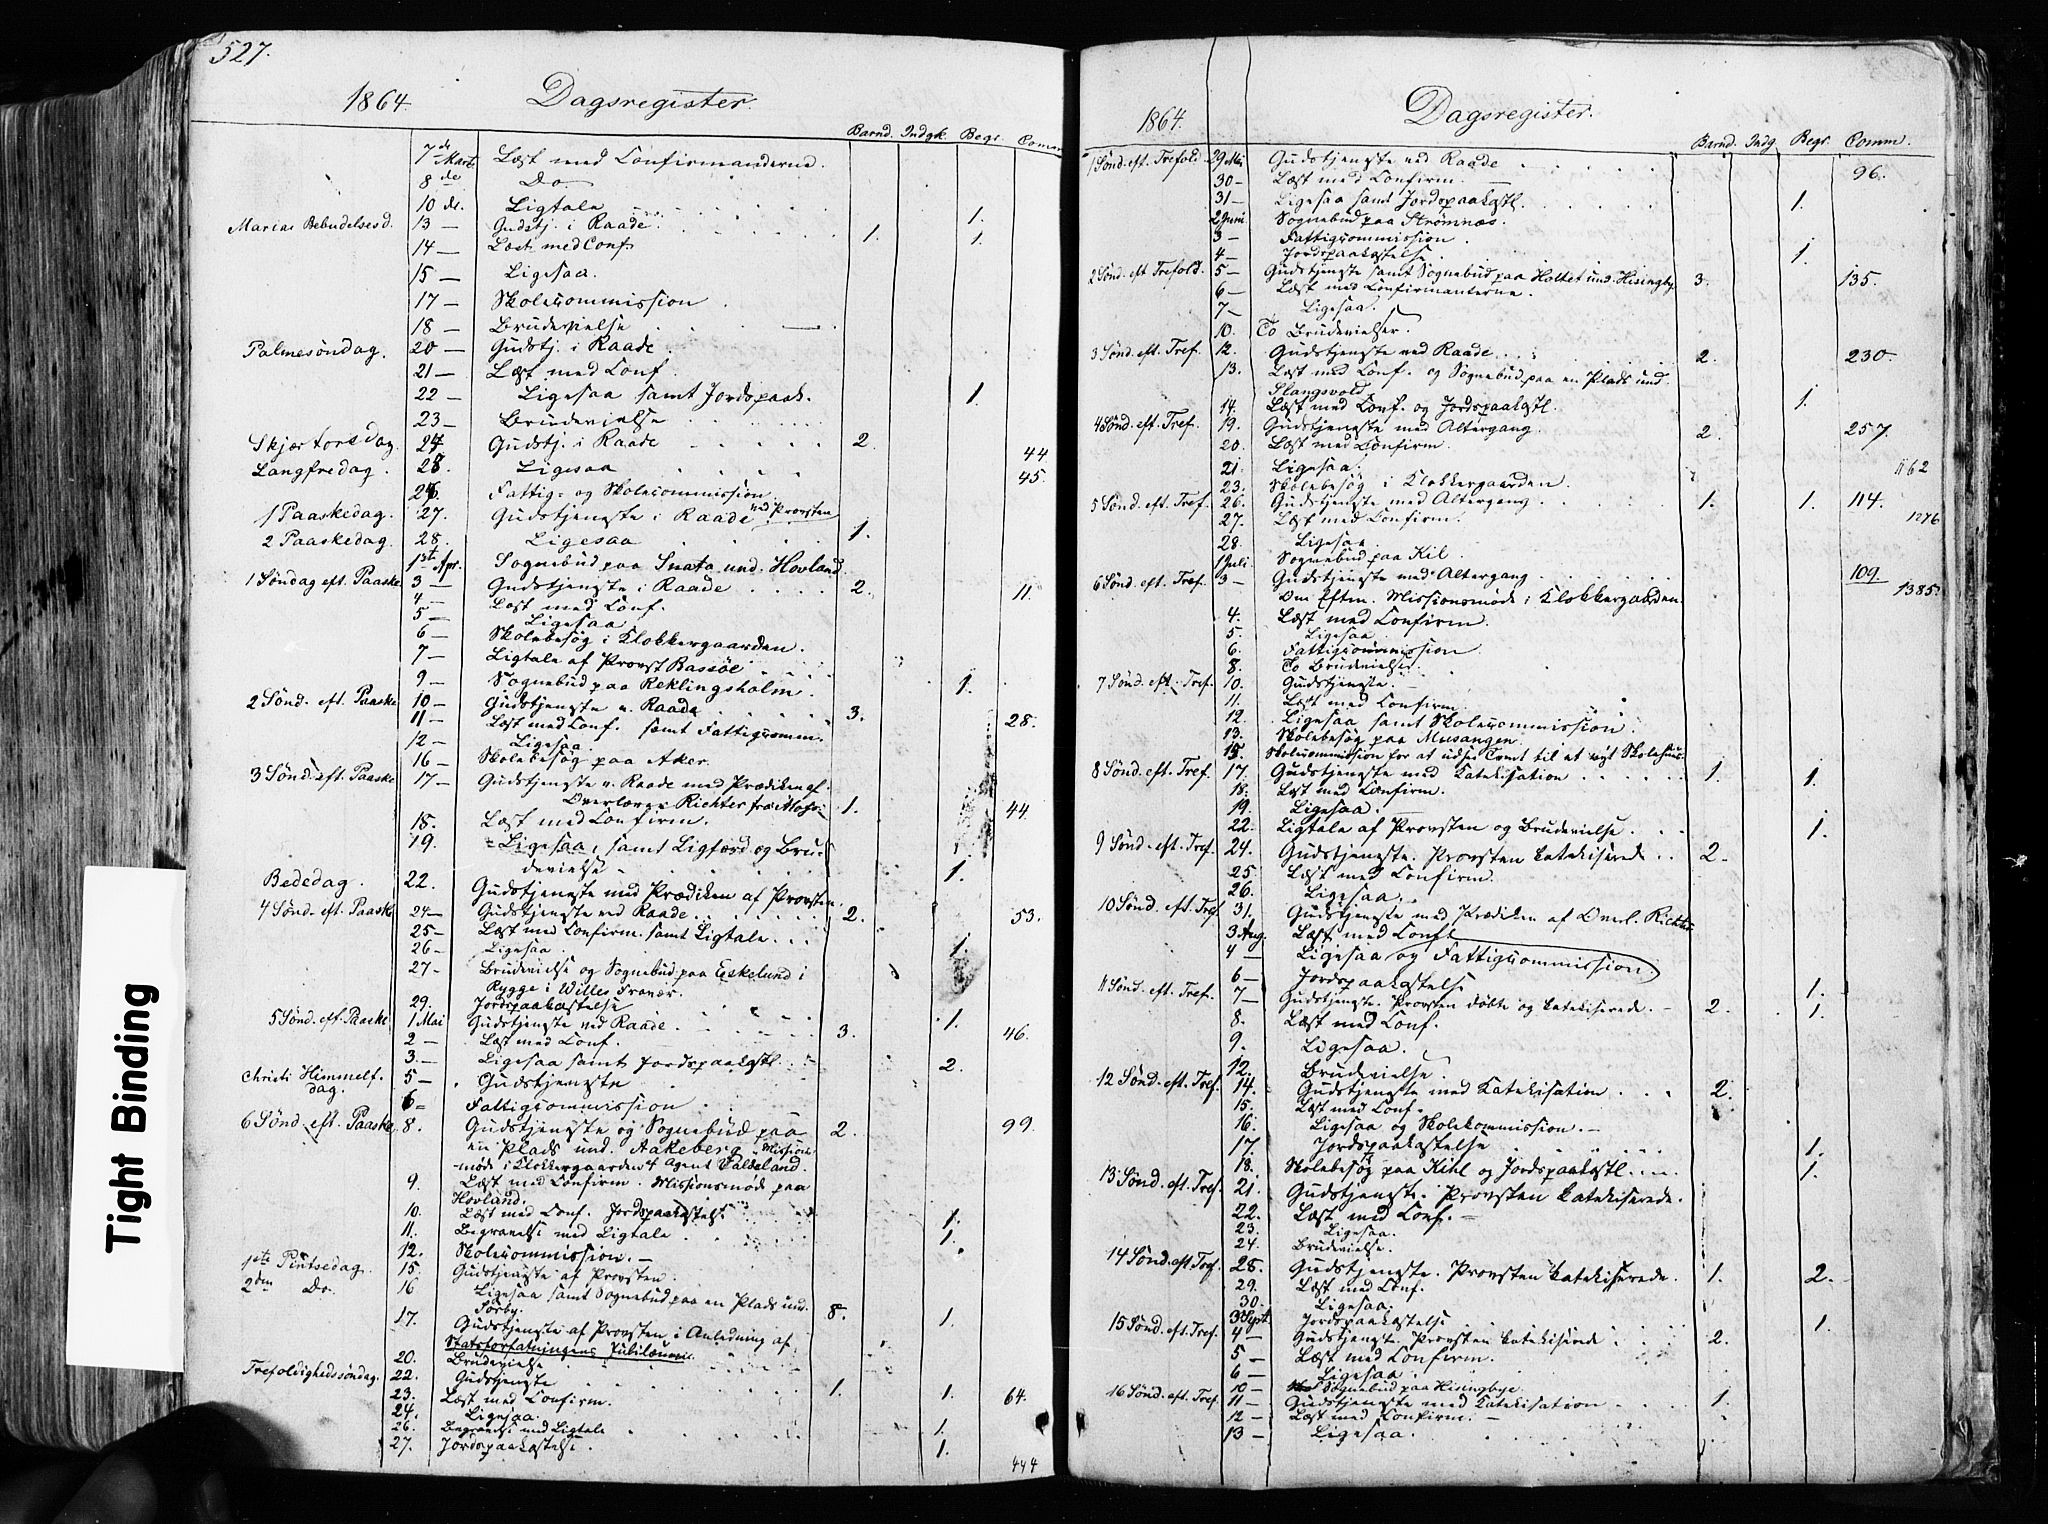 527.
1864. Dagsregister.
Barnd. Indgk. Begr. Comm
7de Marts Læst med Confirmanderne.
8 de Do.
10 de. Ligtale 1.
Marias Bebudelsesd. 13 — Gudstj. i Raade. 1. 1.
14 — Læst med Conf.
15 — Ligesaa.
17 — Skolecommission
18 — Brudevielse
Palmesøndag. 20 — Gudstj. i Raade.
21 — Læst med Conf.
22 — Ligesaa samt Jordspaak. 1.
23 — Brudevielse
Skjærtorsdag 24. Gudstj. i Raade 2. 44
Langfredag. 25. Ligesaa 45.
26. Fattig- og Skolecommission
1 Paaskedag. 27. Gudstjeneste i Raade ved Provsten
2 Paaskedag. 28. Ligesaa 1.
1st Apr. Sognebud paa und. Hovland.
1 Søndag eft. Paaske 3 — Gudstjeneste i Raade 2. 11.
4 — Læst med Conf.
5 — Ligesaa
6 — Skolebesøg i Klokkergaarden.
7 — Ligtale af Provst Rassøe
9 — Sognebud paa Reklingsholm. 1.
2 Sønd. eft. Paaske 10 — Gudstjeneste v. Raade 3. 28.
11 — Læst med Conf. samt Fattigcomm.
12 — Ligesaa.
16 — Skolebesøg paa Aker.
3 Sønd. eft. Paaske 17 — Gudstjeneste v. Raade med Prædiken af
Overlærer Richter fra Moss. 1. 44
18. Læst med Confirm.
19. Ligesaa, samt Ligfærd og Bru-
devielse 1.
Bededag. 22. Gudstjeneste med Prædiken af Provsten.
4 Sønd. eft. Paaske 24 — Gudstjeneste ved Raade 2. 53.
25 — Læst med Confirm. samt Ligtale.
26 — Ligesaa. 1.
27 — Brudevielse og Sognebud paa Eskelund i
Rygge i Willes Fravær.
29. Jordspaakastelse
5 Sønd. eft. Paaske 1 Mai Gudstjeneste ved Raade. 3. 1. 46.
2 — Læst med Conf.
3 — Ligesaa samt Jordspaakastl. 2.
Christi Himmelf.
dag. 5 — Gudstjeneste
6 — Fattigcommission.
6 Sønd. eft. Paaske. 8. Gudstjeneste og Sognebud paa 2. 99.
en Plads und. Aakeberg. Missions-
møde i Klokkergaarden af Agent Valdeland.
9. Læst med Confirm. Missionsmøde paa
Hovland.
10. Læst med Conf. Jordspaakastelse 1.
11. Begravelse med Ligtale 1.
12. Skolecommission. —
1ste Pintsedag. 15. Gudstjeneste af Provsten.
2den Do. 16 Ligesaa samt Sognebud paa en Plads und.
Sørby. 8.
17. Gudstjeneste af Provsten i Anledning af 1.
Statsforfatningens Jubilæum.
20. Brudevielse
Trefoldighedssøndag. 22. Gudstjeneste 1. 1. 64.
23. Læst med Confirm.
24. Ligesaa.
26. Begravelse med Ligtale 1.
27. Jordspaakastelse. 1.
444
1864. Dagsregister.
Barnd. Indg. Begr. Comm.
1 Sønd. eft. Trefold. 29 Mai Gudstjeneste ved Raade 96.
30 — Læst med Confirm.
31 — Ligesaa samt Jordspaakastl. 1.
2 Juni Sognebud paa Strømnæs.
3 — Fattigcommission.
4 — Jordspaakastelse 1.
2 Sønd. eft Trefold. 5 — Gudstjeneste samt Sognebud paa Holtet und. Hisingby. 3. 135.
6 — Læst med Confirmanterne.
7 — Ligesaa.
10. To Brudevielser.
3 Sønd. eft. Tref. 12. Gudstjeneste ved Raade 2. 230.
13. Læst med Conf. og Sognebud paa en Plads und.
Slangsvold
14. Læst med Conf. og Jordspaakastl. 1.
4 Sønd. eft. Tref. 19. Gudstjeneste med Altergang 2. 257.
20. Læst med Confirm.
21. Ligesaa. 1162
23. Skolebesøg i Klokkergaarden.
5 Sønd. eft. Tref. 26. Gudstjeneste med Altergang 1. 1. 114.
27. Læst med Confirm. 1276
28. Ligesaa
1 Juli. Sognebud paa Kil.
6 Sønd. eft. Tref. 3 — Gudstjeneste med Altergang 109
Om Eftm. Missionsmøde i Klokkergaarden. 1385.
4. Læst med Confirm.
5. Ligesaa
6. Fattigcommission
8. To Brudevielser.
7 Sønd. eft. Tref. 10. Gudstjeneste.
11. Læst med Confirm.
12. Ligesaa samt Skolecommission.
13. Skolebesøg paa Musangen.
15. Skolecommission for at udse Tomt til et nyt Skolehuus.
8 Sønd. eft. Tref. 17. Gudstjeneste med Katekisation 1. 1.
18. Læst med Confirm.
19. Ligesaa.
22. Ligtale af Provsten og Brudevielse. 1.
9 Sønd. eft. Tref. 24. Gudstjeneste. Provsten katekiserede 2.
25. Læst med Confirm.
26. Ligesaa.
10 Sønd. eft. Tref 31. Gudstjeneste med Prædiken af Overl. Richter
3 Aug. Læst med Conf.
4 — Ligesaa og Fattigcommission.
6 — Jordspaakastelse 1.
11 Sønd. eft. Tref. 7 — Gudstjeneste. Provsten døbte og katekiserede. — 2. 1.
8. Læst med Conf.
9. Ligesaa.
12. Brudevielse.
12 Sønd. eft. Tref. 14. Gudstjeneste med Katekisation 2.
15. Læst med Conf.
16. Ligesaa og Skolekommission. —
17. Jordspaakastelse 1.
18. Skolebesøg paa Kihl og Jordspaakastl. 1.
13 Sønd. eft. Tref. 21. Gudstjeneste. Provsten katekiserede.
22. Læst med Conf. —
23. Ligesaa.
24. Brudevielse.
14 Sønd. eft Tref. 28. Gudstjeneste. Provsten katekiserede. 1. 2.
29. Læst med Conf.
30. Ligesaa.
3 Sept. Jordspaakastelse 1.
15 Sønd. eft. Tref. 4 — Gudstjeneste. Provsten katekiserede 2.
5 — Læst med Confirm.
6 — Ligesaa.
10 — Sognebud paa Hisingbye.
16 Sønd. eft. Tref. 11 — Gudstjeneste med Katekisation 1.
12 — Læst med Confirm. —
13 — Ligesaa.
Tight Binding